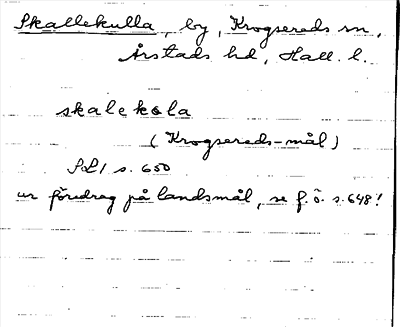 Skallekulla, by, Krogsereds sn,
Årstads hd, Hall. l.
skalekola
(Krogsereds-mål)
SL1 s. 650
ur föredrag på landsmål, se f.ö. s. 648!